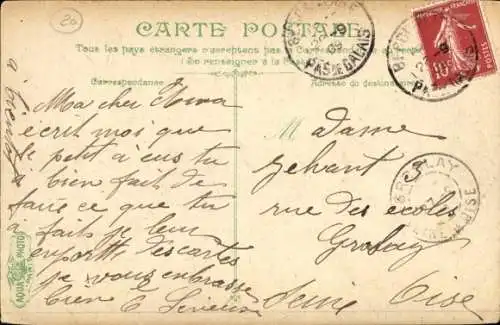 20
CARTE POSTALE
Tous les pays étrangers n'acceptent pas la Correspondance au recto
(Se renseigner à la Poste)
Correspondance
Adresse du destinataire
a bientot
Ma cher
écrit moi que
le petit à eus tu
à bien fait de
faire ce que tu
à fais je leur
emporte des cartes
je vous embrasse
bien
M adame
Jehant
rue des écoles
Groslay
Seine Oise
PAS DE CALAIS
10c
POSTES
GROSLAY
SEINE ET OISE
AQUA PHOTO